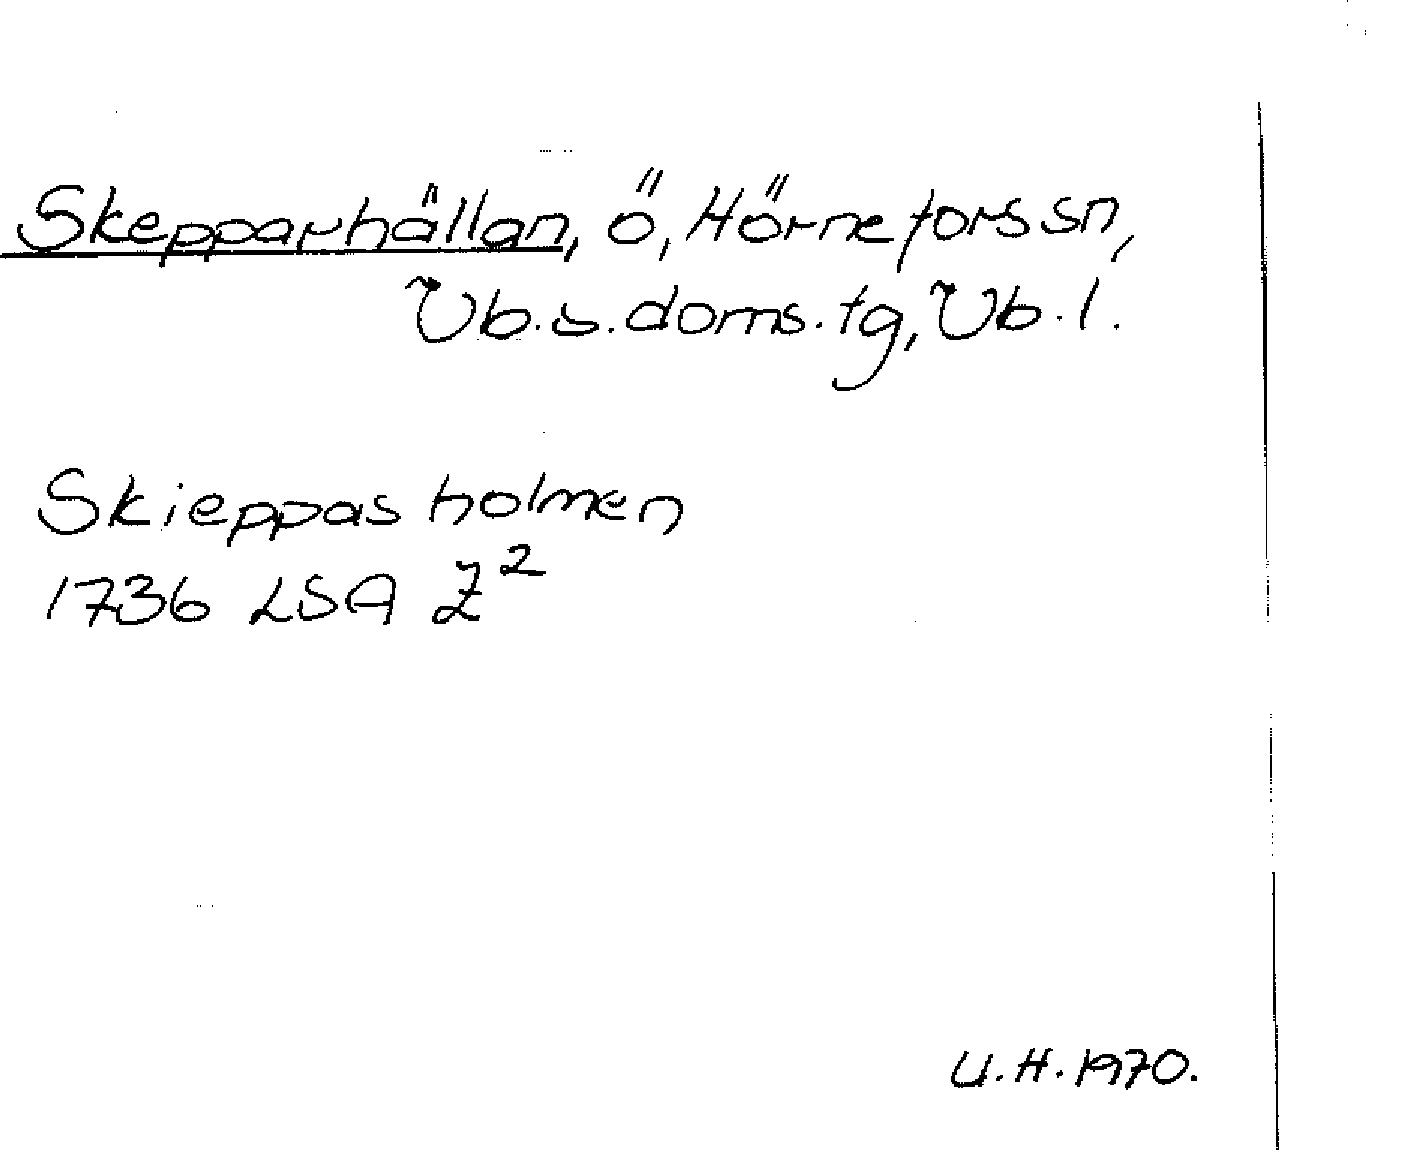 Skepparhällan, ö, Hörnefors sn,
Vb.s.doms.tg, Vb.l.
Skieppas holmen
1736 LSA Z²
U.H. 1970.